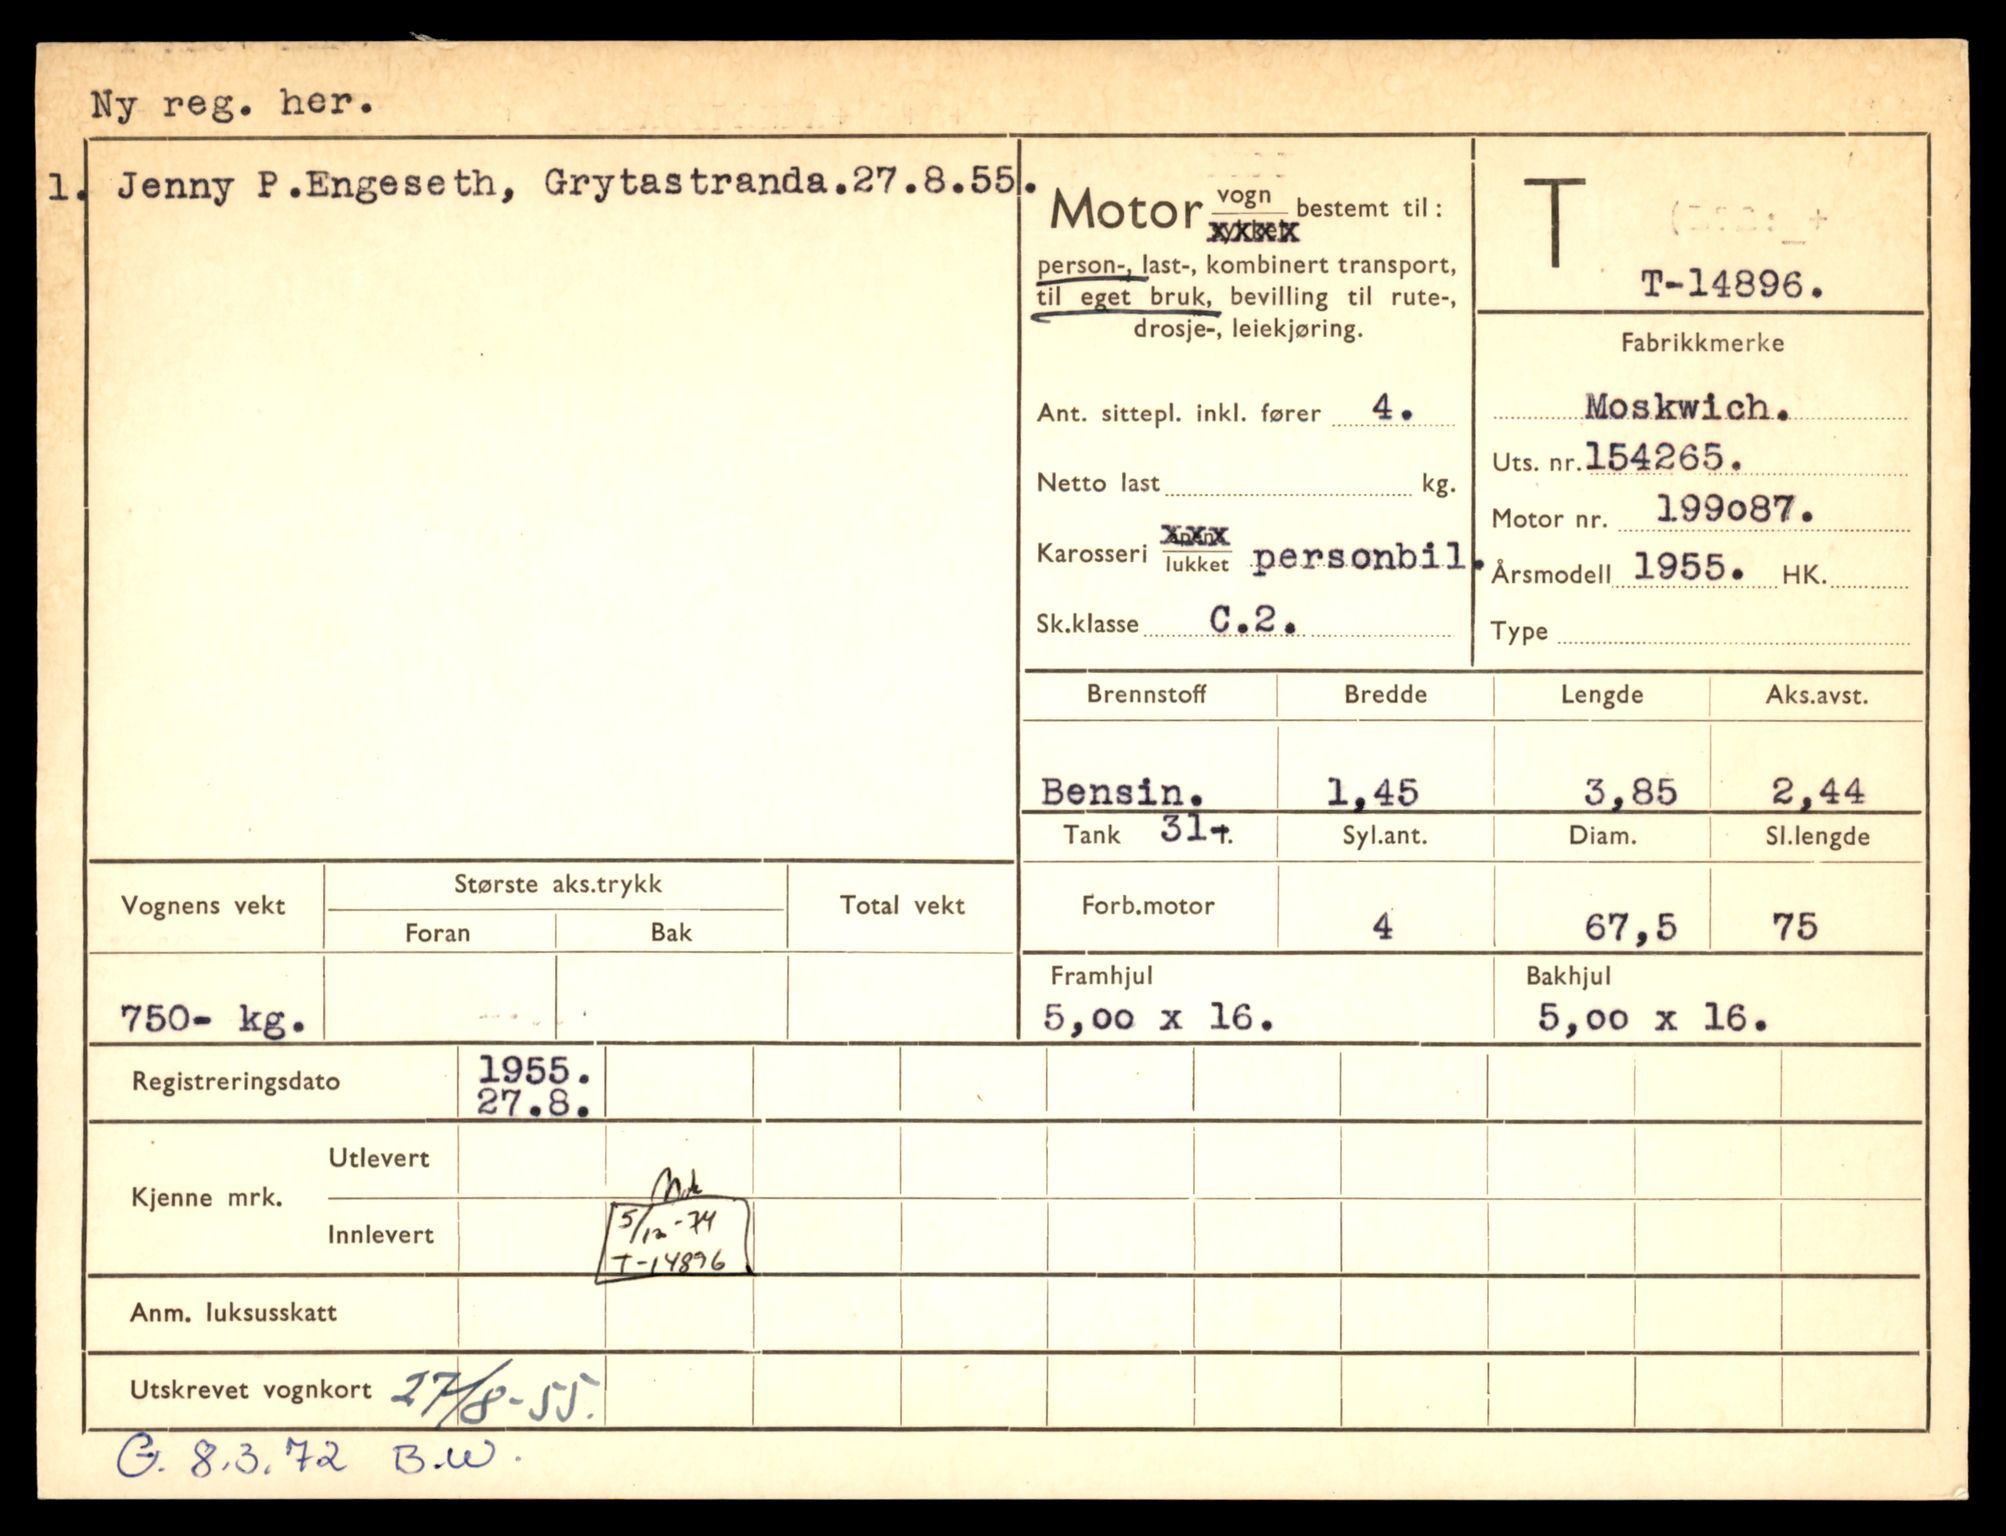 Ny reg. her.
1. Jenny P.Engeseth, Grytastranda.27.8.55.
Motor vogn bestemt til:
person-, last-, kombinert transport,
til eget bruk, bevilling til rute-,
drosje-, leiekjøring.
Ant. sittepl. inkl. fører 4.
Netto last kg.
Karosseri lukket personbil.
Sk.klasse C.2.
T
T-14896.
Fabrikkmerke
Moskwich.
Uts. nr. 154265.
Motor nr. 199o87.
Årsmodell 1955. HK.
Type
Brennstoff Bredde Lengde Aks.avst.
Bensin. 1,45 3,85 2,44
Tank 31 Syl.ant. Diam. Sl.lengde
Forb.motor 4 67,5 75
Framhjul Bakhjul
5,oo x 16. 5,oo x 16.
Vognens vekt Største aks.trykk Total vekt
Foran Bak
750- kg.
Registreringsdato 1955.
27.8.
Kjenne mrk. Utlevert
Innlevert 5/12-74
T-14896
Anm. luksusskatt
Utskrevet vognkort 27/8-55.
G. 8.3.72 B.W.